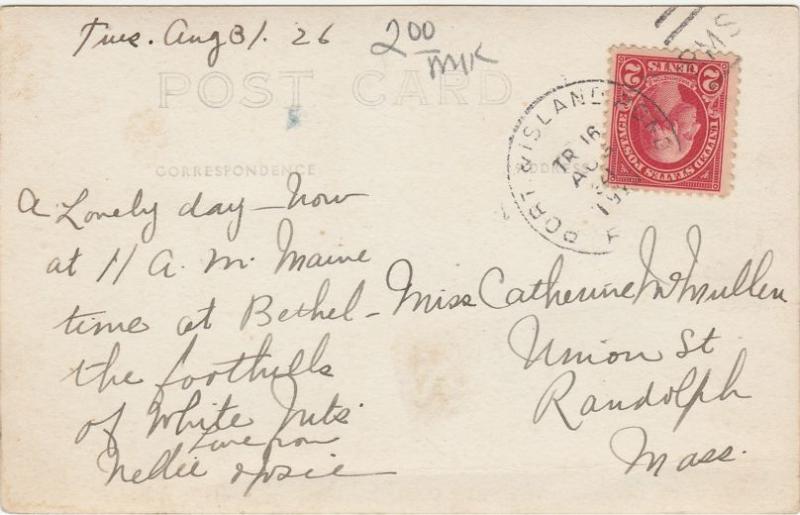 Tues. Aug 31. 26
2 00
POST CARD
CORRESPONDENCE
ADDRESS
RMS
2 CENTS 2
UNITED STATES POSTAGE
PORT & ISLAND
TR 16
A Lovely day - Now
at 11 A. M. Maine
time at Bethel -
the foothills
of White Mts
Love from
Nellie & Josie
Miss Catherine McMullen
Union St
Randolph
Mass.